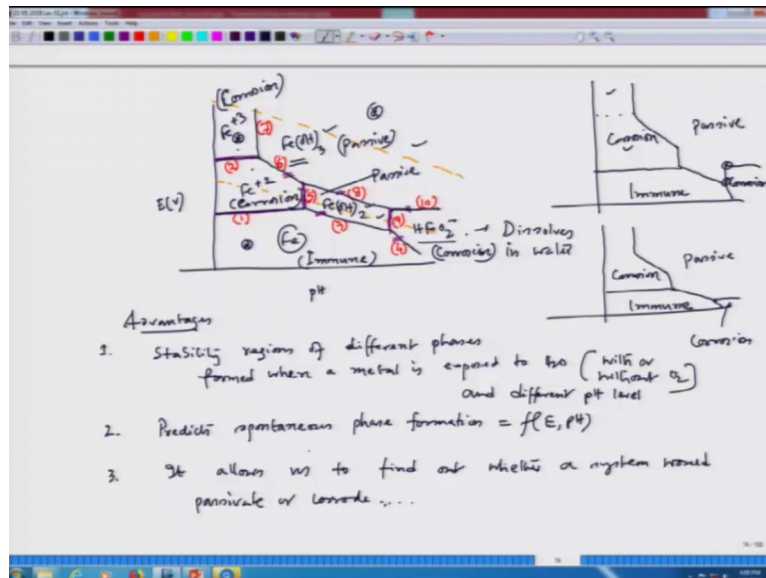 (Corrosion)
Fe+3
(7)
Fe(OH)3 (Passive)
(2)
(6)
Passive
Fe+2
(Corrosion)
(5)
(8)
Fe(OH)2
(10)
E(V)
(1)
(3)
(9)
HFeO2- → Dissolves
(Corrosion) in water
(4)
Fe
(Immune)
pH
Corrosion
Passive
Immune
Corrosion
Corrosion
Passive
Immune
Corrosion
Advantages
1. Stability regions of different phases
formed when a metal is exposed to H2O (with or
without O2)
and different pH level
2. Predicts spontaneous phase formation = f(E, PH)
3. It allows us to find out whether a system would
passivate or corrode ....